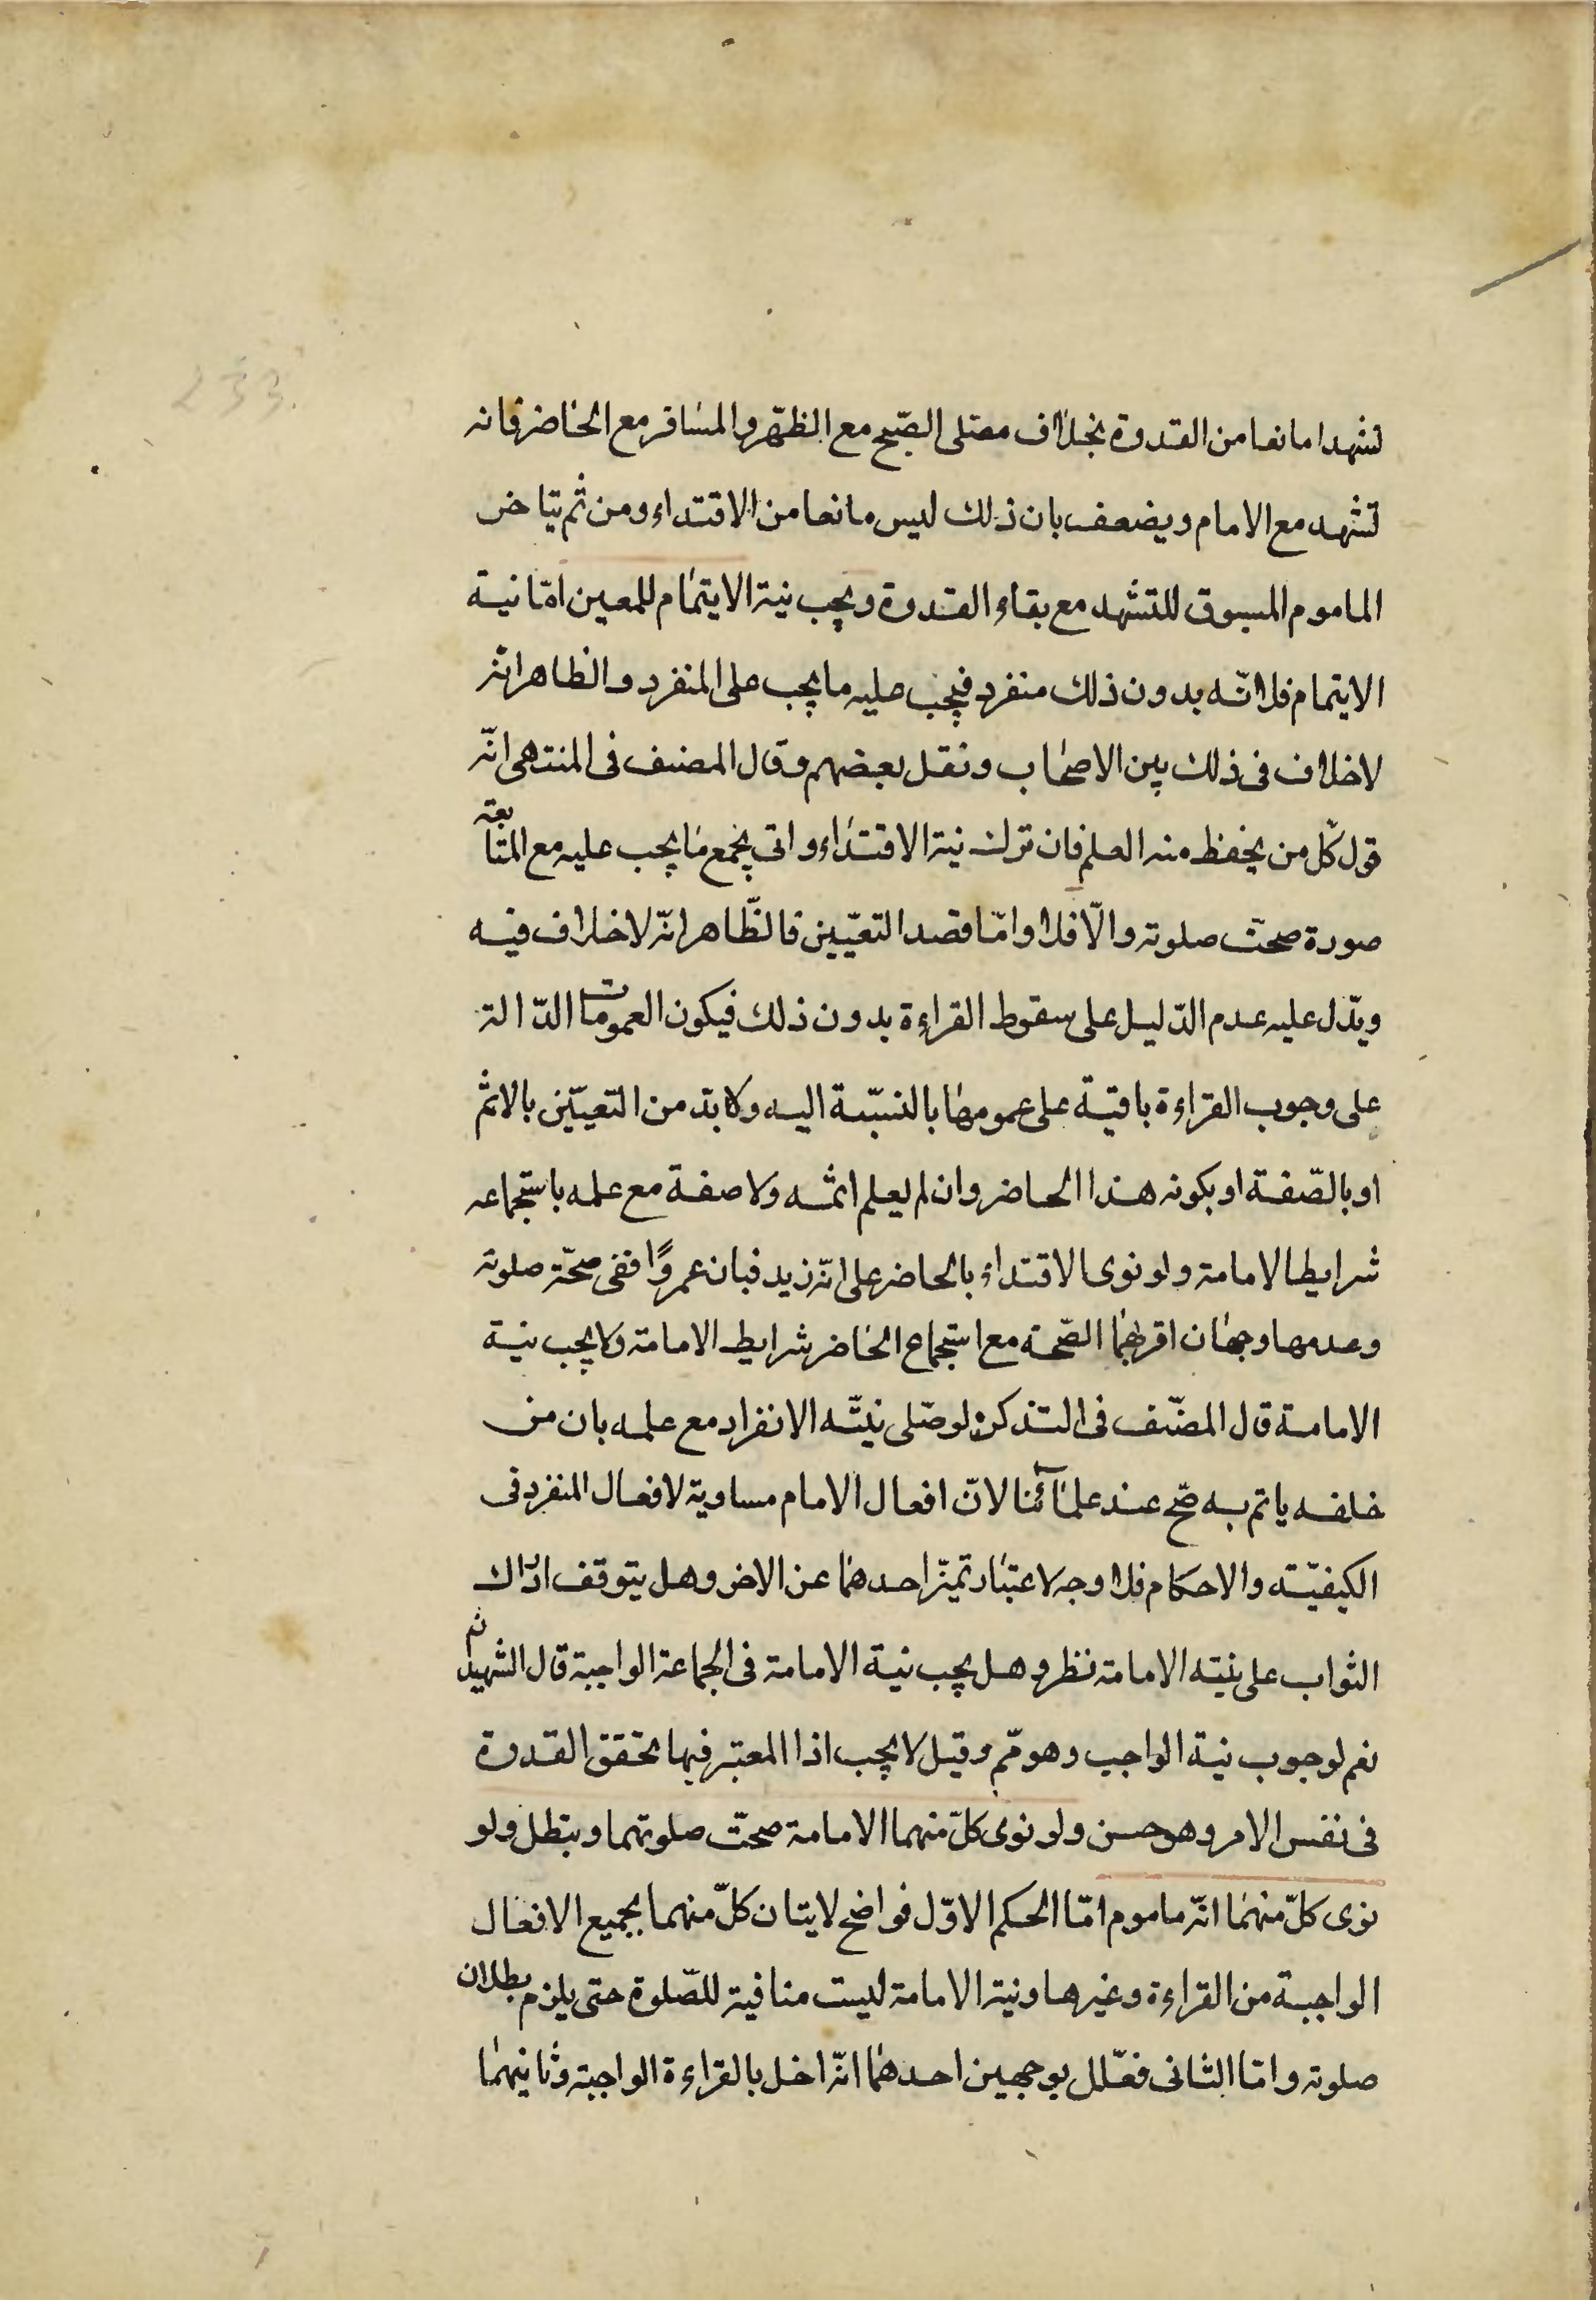 233
تشهدا مانعا من القدوة بخلاف مصلى الصّبح مع الظّهر والمسافر مع الحاضر فانه
تشهد مع الامام ويضعف بان ذلك ليس مانعا من الاقتداء ومن ثم يتاخر
الماموم المسبوق للتشهد مع بقاء القدوة ويجب نية الايتمام للمعين امّا نية
الايتمام فلانّه بدون ذلك منفرد فيجب عليه ما يجب على المنفرد والظاهر انّه
لاخلاف فى ذلك بين الاصحاب ونقل بعضهم وقال المصنف فى المنتهى انّه
قول كلّ من يحفظ منه العلم فان ترك نية الاقتداء واتى بجمع ما يجب عليه مع المتابعة
صورة صحت صلوته والّا فلا وامّا قصد التعيّين فالظّاهر انّه لاخلاف فيه
ويدّل عليه عدم الدّليل على سقوط القراءة بدون ذلك فيكون العمومات الدّالة
على وجوب القراءة باقية على عمومها بالنسّبة اليه ولابدّ من التعيّين بالاسم
او بالصّفة او بكونه هذا الحاضر وان لم يعلم اسمه ولا صفة مع علمه باستجماعه
شرايط الامامة ولو نوى الاقتداء بالحاضر على انّه زيد فبان عمروًا ففى صحّة صلوته
وعدمها وجهان اقربهما الصّحة مع استجماع الحاضر شرايط الامامة ولا يجب نية
الامامة قال المصنّف فى التذكرة لو صلى بنيّة الانفراد مع علمه بان من
خلفه ياتم به صّح عند علمآئنا لانّ افعال الامام مساوية لافعال المنفرد فى
الكيفيّة والاحكام فلا وجه لاعتبار تميّز احدهما عن الاخر وهل يتوقف ادراك
الثواب على نية الامامة نظر وهل يجب نية الامامة فى الجماعة الواجبة قال الشهيد ثم
نعم لوجوب نية الواجب وهو مّم وقيل لا يجب اذا المعتبر فيها تحقق القدوة
فى نفس الامر وهو حسن ولو نوى كلّ منهما الامامة صحتّ صلوتهما وتبطل ولو
نوى كلّ منهما انّه ماموم امّا الحكم الاوّل فواضح لايتان كلّ منهما بجميع الافعال
الواجبة من القراءة وغيرها ونية الامامة ليست منافية للصّلوة حتى يلزم بطلان
صلوته وامّا الثانى فعّلل بوجهين احدهما انّه اخل بالقراءة الواجبة وثانيهما